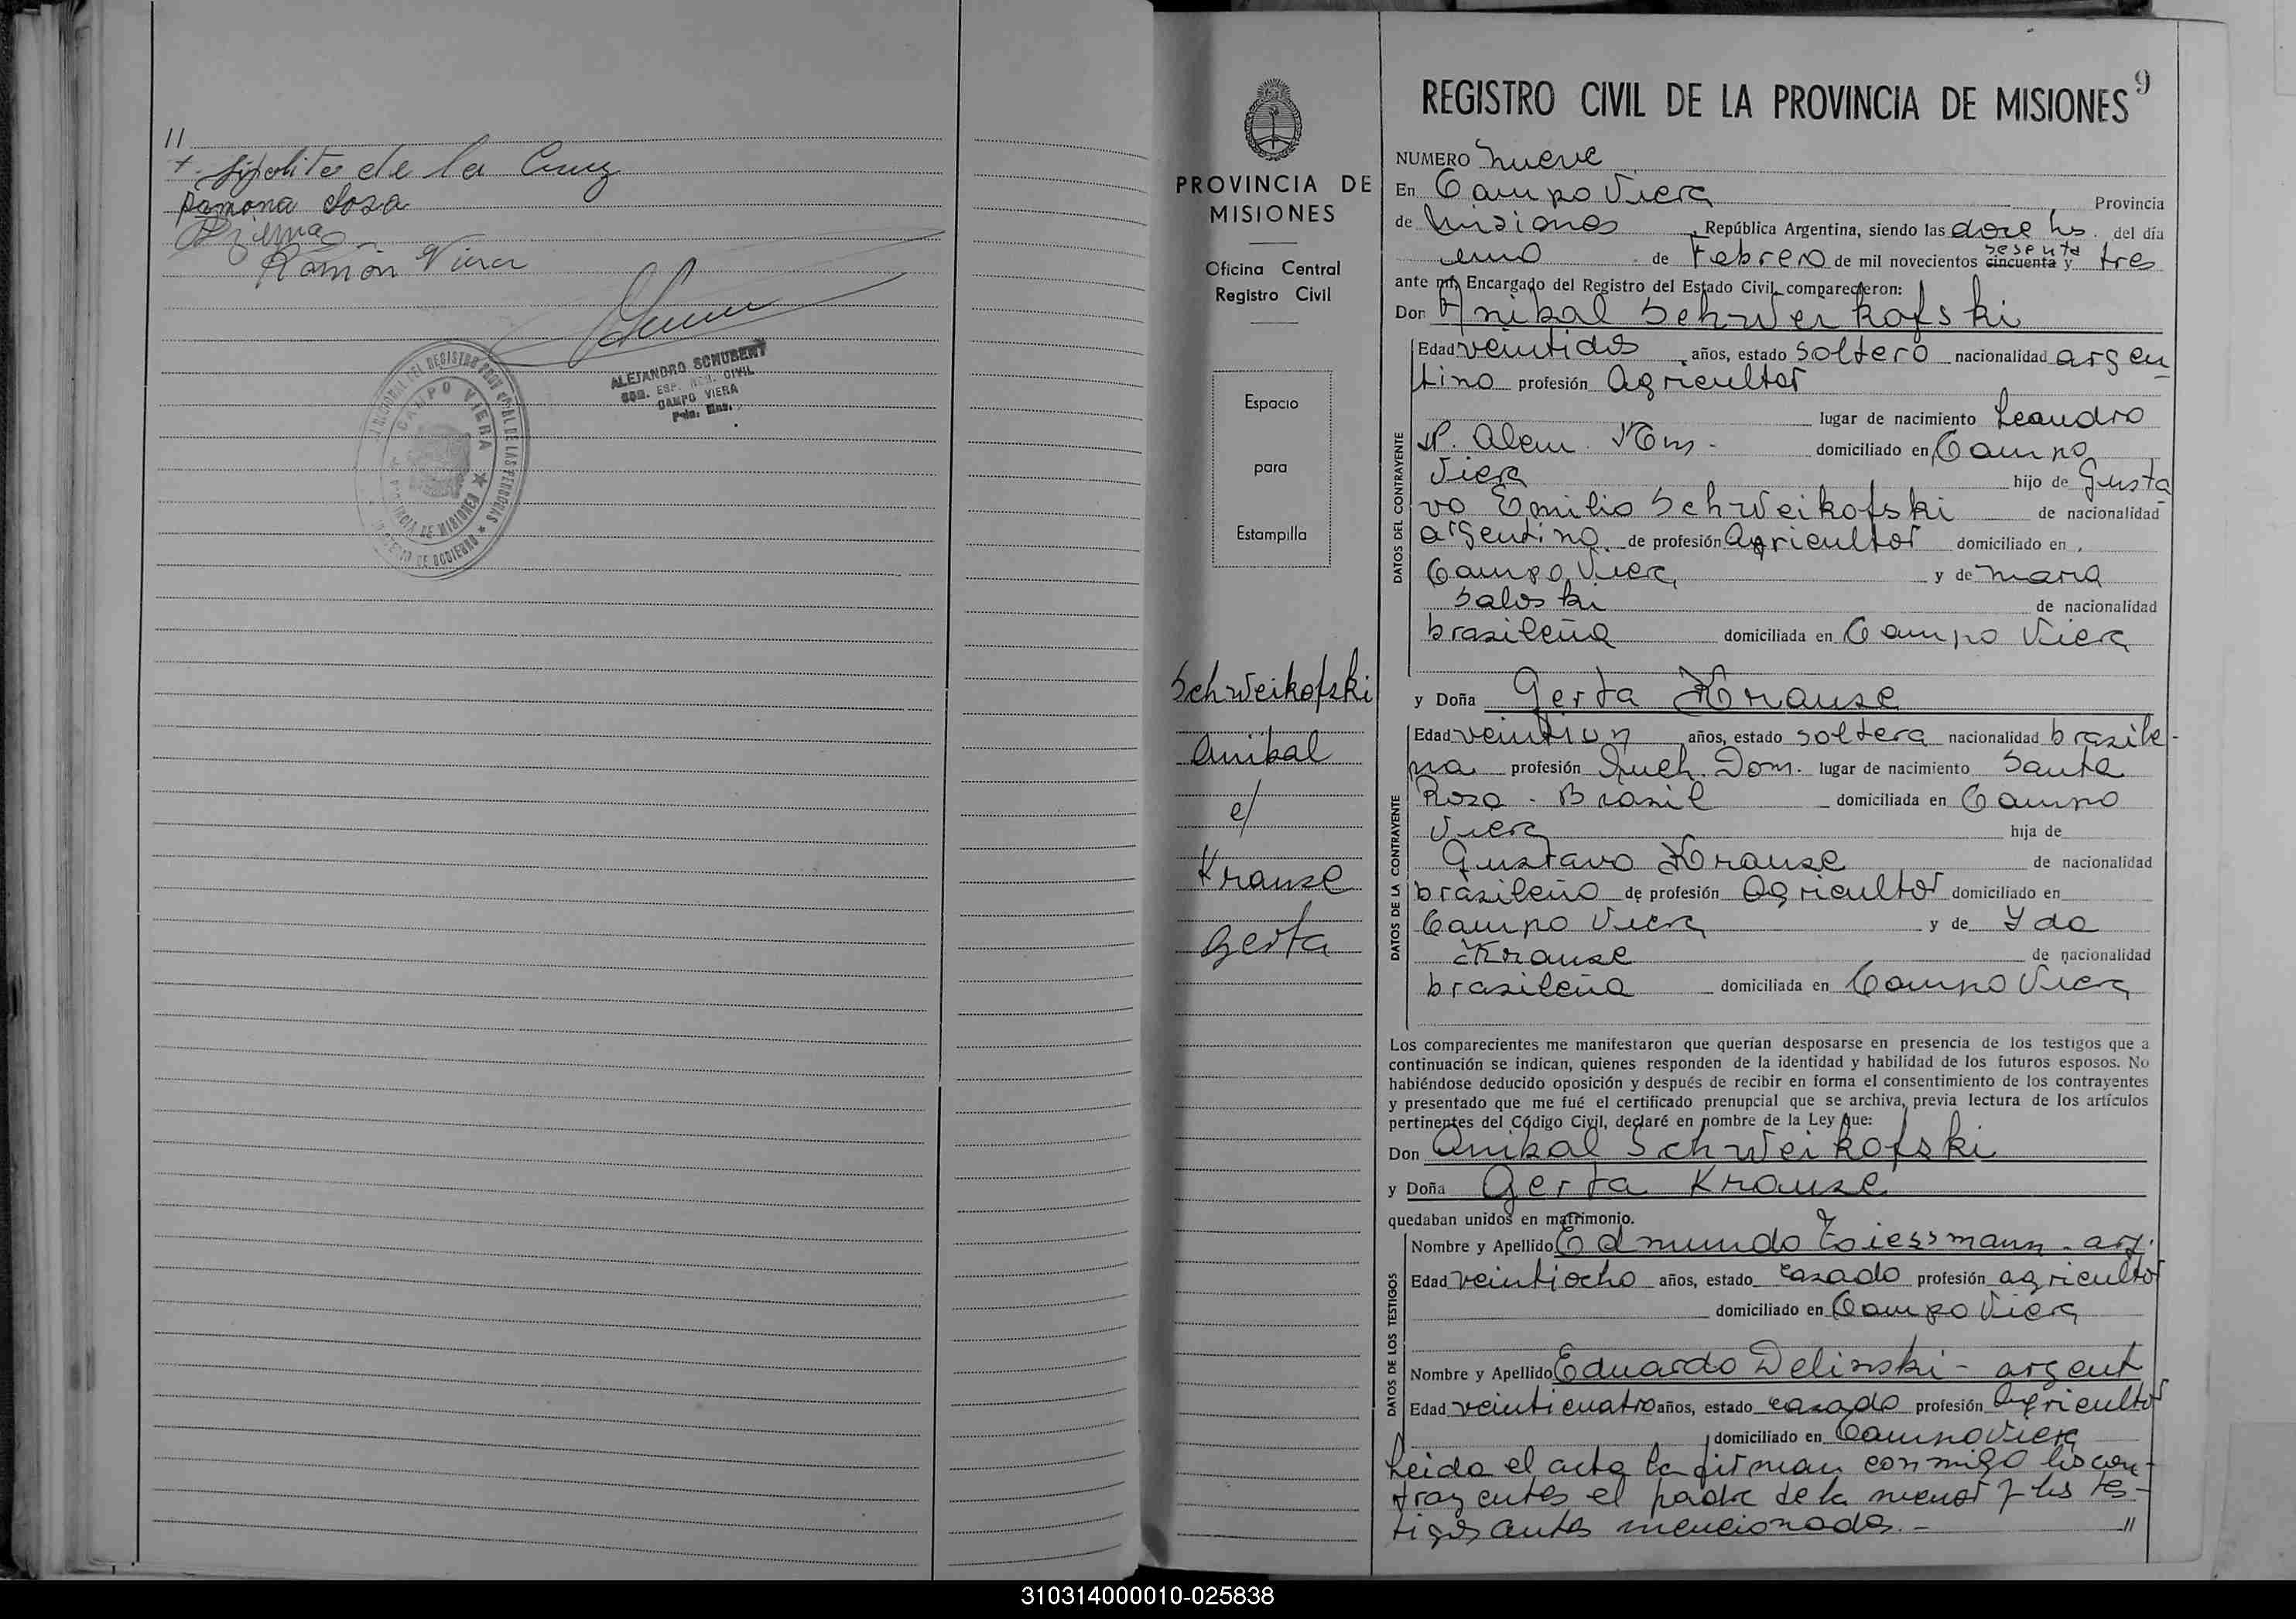 //
+ Hipolito de la Cruz
Ramona Sosa
Ramón Viera
ALEJANDRO SCHUBERT
CIVIL
CAMPO VIERA
REGISTRO CIVIL DE LA PROVINCIA DE MISIONES
9
PROVINCIA DE
MISIONES
Oficina Central
Registro Civil
Espacio
para
Estampilla
Schweikofski
Anibal
c/
Krause
Gerta
NUMERO nueve
En Campo Viera Provincia
de Misiones, República Argentina, siendo las doce hs. del día
uno de Febrero de mil novecientos cincuenta sesenta y tres
ante mí, Encargado del Registro del Estado Civil, comparecieron:
Don Anibal Schweikofski
DATOS DEL CONTRAYENTE
Edad veintidos años, estado soltero nacionalidad argen
tino profesión Agricultor
lugar de nacimiento Leandro
N. Alem domiciliado en Campo
Viera hijo de Gusta
vo Emilio Schweikofski de nacionalidad
argentino de profesión Agricultor domiciliado en
Campo Viera y de Maria
Saloski de nacionalidad
brasileña domiciliada en Campo Viera
y Doña Gerta Krause
DATOS DE LA CONTRAYENTE
Edad veintiun años, estado soltera nacionalidad brasile-
ña profesión Queh. Dom. lugar de nacimiento Santa
Rosa - Brasil domiciliada en Campo
Viera hija de
Gustavo Krause de nacionalidad
brasileño de profesión Agricultor domiciliado en
Campo Viera y de Yda
Krause de nacionalidad
brasileña domiciliada en Campo Viera
Los comparecientes me manifestaron que querían desposarse en presencia de los testigos que a
continuación se indican, quienes responden de la identidad y habilidad de los futuros esposos. No
habiéndose deducido oposición y después de recibir en forma el consentimiento de los contrayentes
y presentado que me fué el certificado prenupcial que se archiva, previa lectura de los artículos
pertinentes del Código Civil, declaré en nombre de la Ley que:
Don Anibal Schweikofski
y Doña Gerta Krause
quedaban unidos en matrimonio.
DATOS DE LOS TESTIGOS
Nombre y Apellido Edmundo - arg.
Edad veintiocho años, estado casado profesión agricultor
domiciliado en Campo Viera
Nombre y Apellido Eduardo Delinski - argent
Edad veinticuatro años, estado casado profesión Agricultor
domiciliado en Campo Viera
Leida el acta la firman conmigo los con-
trayentes el padre de la menor y los tes-
tigos antes mencionados. - //
310314000010-025838